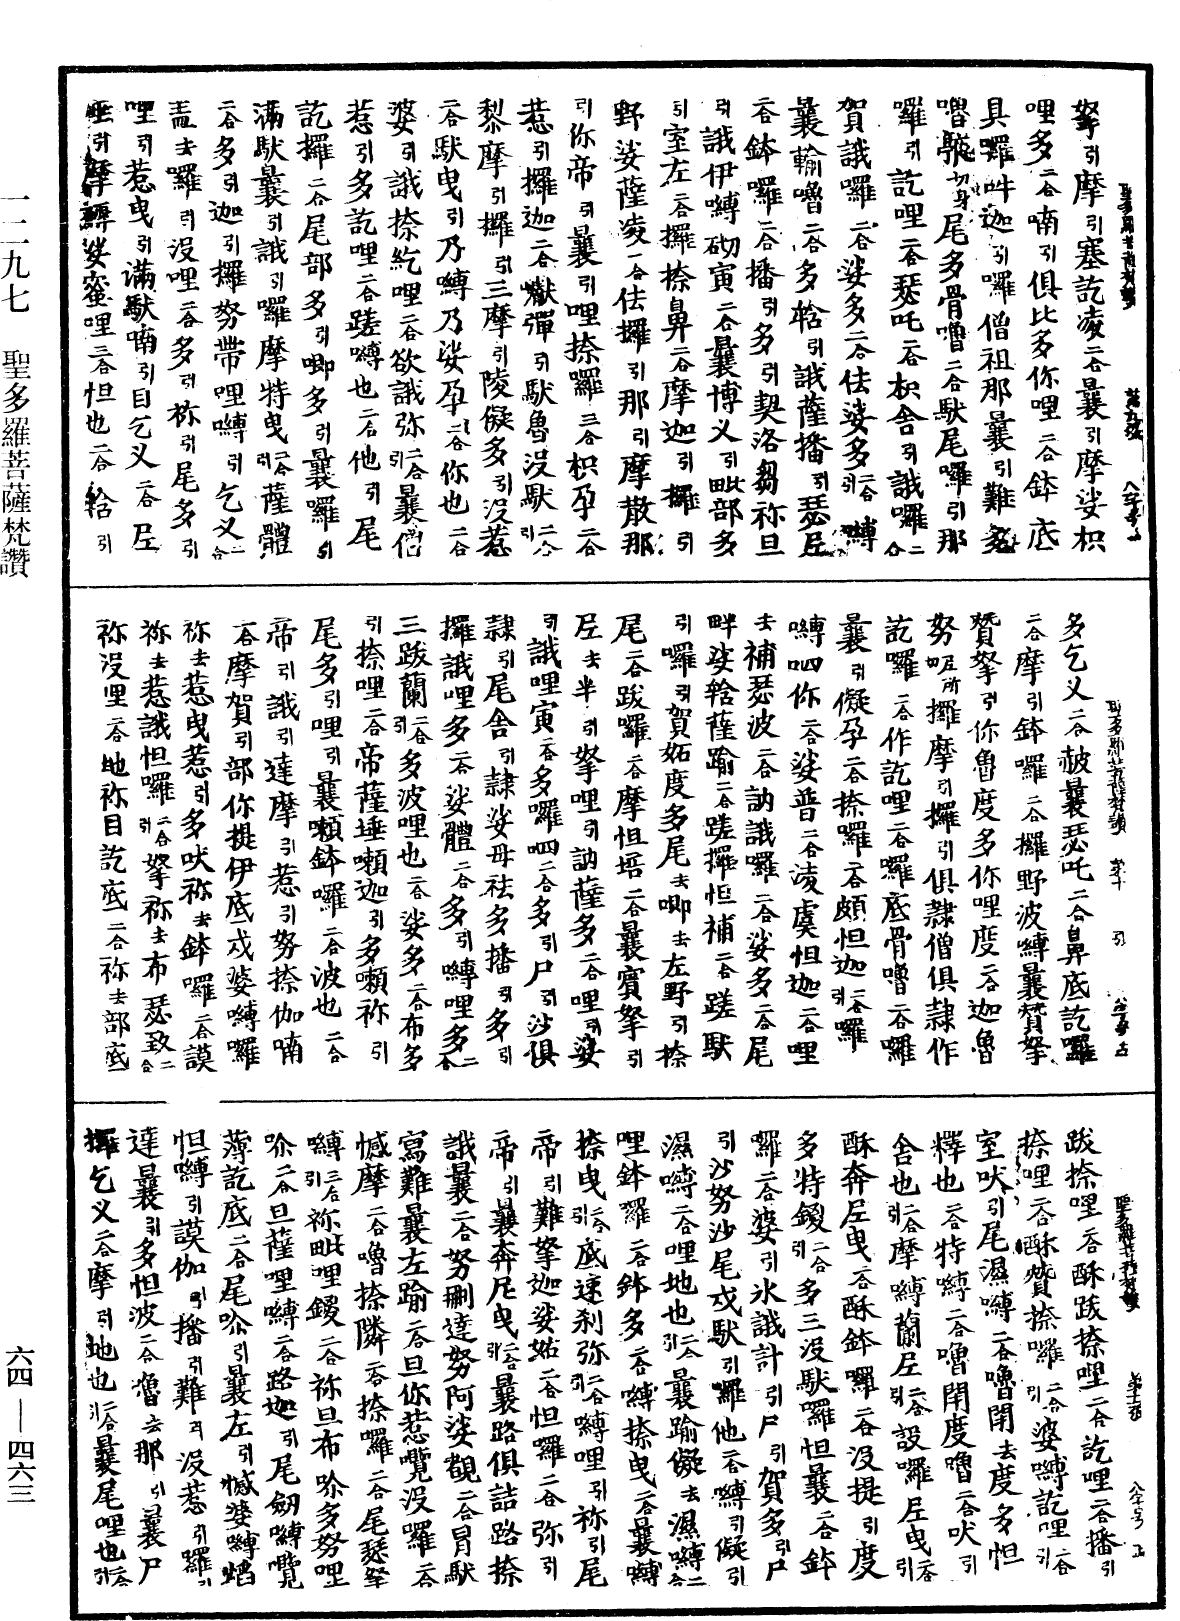 拏引摩引塞訖凌二合曩引摩娑枳
哩多二合喃引俱比多你哩二合鉢底
具囉吽迦引囉僧祖那曩引難多
嚕驅切身尾多骨嚕二合馱尾囉引那
囉引訖哩二合瑟吒二合枳舍引誐囉二合
賀誐囉二合娑多二合佉婆多二合引嚩
曩輸嚕二合多轄引誐薩播引瑟尼
二合鉢囉二合播引多引契洛芻祢旦
引誐伊嚩砌寅二合曩博乂引毗部多
引室左二合攞捺鼻二合摩迦引攞引
野娑薩凌一合佉攞引那引摩散那
引你帝引曩引哩捺囉三合枳孕二合
惹引攞迦二合嶽彈引馱魯沒馱引
黎摩引攞引三摩引陵儗多引沒惹
二合馱曳引乃嚩乃娑孕二合你也二合
婆引誐捺紇哩二合欲誐弥二合引曩僧
惹引多訖哩二合蹉嚩也二合他引尾
訖攞二合尾部多引唧多引曩囉引
滿馱曩引誐引囉摩特曳二合引薩體
二合多引迦引攞努帶哩嚩引乞乂二合
盖去囉引沒哩二合多引祢引尾多引
哩引惹曳引滿馱喃引目乞乂二合左
𠱥引摩嚩娑蜜哩三合怛也二合給引
多乞乂二合赦曩瑟吒二合鼻底訖囉
二合摩引鉢囉二合攞野波嚩曩贊拏
贊拏引你魯度多你哩度二合迦魯
努昵所攞摩引攞引俱隷僧俱隷作
訖囉二合作訖哩二合囉底骨嚕二合囉
曩引儗孕二合捺囉二合頗怛迦引二合囉
嚩呬你二合娑普二合淩虞怛迦二合哩
去補瑟波二合訥誐囉二合娑多二合尾
畔娑轄薩踰二合蹉攞怛補二合蹉馱
引囉引賀妬度多尾去唧去左野引捺
尾二合跋囉二合摩怛培二合曩賓拏引
尼去半引拏哩引訥薩多二合哩引娑
引誐哩寅二合多囉呬二合多引尸引沙俱
隷引尾舍引隷娑母祛多播引多引
攞誐哩多二合娑體二合多引嚩哩多二合
三跋蘭二合引多波哩也二合娑多二合布多
引捺哩二合帝薩埵嚬迦引多嚬祢引
尾多引哩引曩嚬鉢囉二合波也二合
帝引誐引達摩引惹引努捺伽喃
一合摩賀引部你提伊底戎婆嚩囉
祢去惹曳惹引多吠祢去鉢囉二合謨
祢去惹誐怛囉二合引拏祢去布瑟致二合
祢沒哩二合地祢目訖底二合祢去部底
跋捺哩二合酥跋捺哩二合訖哩二合播引
捺哩二合酥贊捺囉引二合婆嚩訖哩引二合
室吠引尾濕嚩二合嚕閉去度多怛
釋也二合特嚩二合嚕閉度嚕二合吠引
舍也引二合摩嚩蘭尼引二合設囉尼曳引二合
酥奔尼曳二合酥鉢囉二合沒提引度
多特鑁引二合多三沒馱囉怛曩二合鉢
囉二合婆引氷誐計引尸引賀多引尸
引沙努沙尾戎馱引囉他二合嚩引儗引
濕嚩二合哩地也引二合曩踰儗去濕嚩二合
哩鉢囉二合鉢多二合嚩捺曳二合曩嚩
捺曳引二合底速刹弥引二合嚩哩引祢引尾
帝引難拏迦娑姤二合怛囉二合弥引
帝引曩奔尼曳引二合曩路俱詰路捺
誐曩二合努刪達努阿娑覩二合冒馱
寫難曩左踰二合旦你惹覽沒囉二合
憾摩二合嚕捺隣二合捺囉二合尾瑟拏
嚩引三合祢毗哩鑁二合祢旦布呤多努哩
呤二合旦薩哩嚩二合路迦引尾劒嚩覽
薄訖底二合尾呤引曩左引憾婆嚩熖
怛嚩引謨伽引播引難引沒惹引囉引
達曩引多怛波二合嚕去那引曩尸
攞乞乂二合摩引地也引二合曩尾哩也二合
一二九七　聖多羅菩薩梵讚
六四—四六三